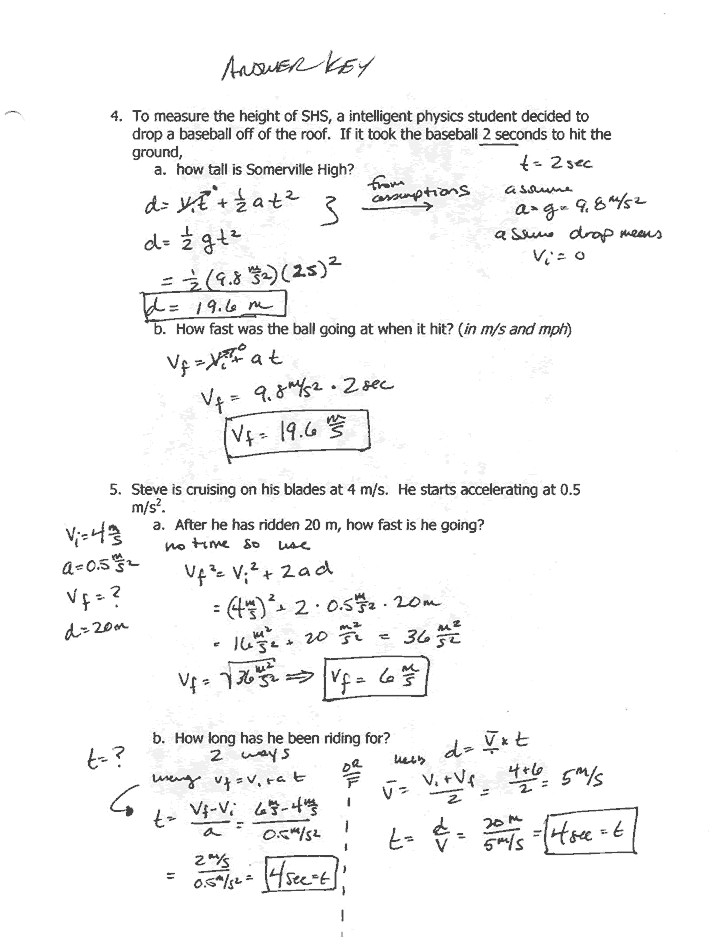 ANSWER KEY
4. To measure the height of SHS, a intelligent physics student decided to
drop a baseball off of the roof. If it took the baseball 2 seconds to hit the
ground,
t = 2 sec
a. how tall is Somerville High?
d = Vᵢt⁰ + ½ a t² } from assumptions →
assume
a = g = 9.8 m/s²
d = ½ g t²
assume drop means
Vᵢ = 0
= ½ (9.8 m/s²)(2s)²
d = 19.6 m
b. How fast was the ball going at when it hit? (in m/s and mph)
Vf = Vᵢ⁰ + at
Vf = 9.8 m/s² · 2 sec
Vf = 19.6 m/s
5. Steve is cruising on his blades at 4 m/s. He starts accelerating at 0.5
m/s².
a. After he has ridden 20 m, how fast is he going?
Vᵢ = 4 m/s
a = 0.5 m/s²
Vf = ?
d = 20m
no time so use
Vf² = Vᵢ² + 2ad
= (4 m/s)² + 2 · 0.5 m/s² · 20m
= 16 m²/s² + 20 m²/s² = 36 m²/s²
Vf = √36 m²/s² ⇒ Vf = 6 m/s
b. How long has he been riding for?
t = ?
2 ways
using Vf = Vᵢ + at
t = (Vf - Vᵢ)/a = (6 m/s - 4 m/s)/(0.5 m/s²)
= (2 m/s)/(0.5 m/s²) = 4 sec = t
OR
d = V̄ × t
V̄ = (Vᵢ + Vf)/2 = (4+6)/2 = 5 m/s
t = d/V = 20 m/(5 m/s) = 4 sec = t